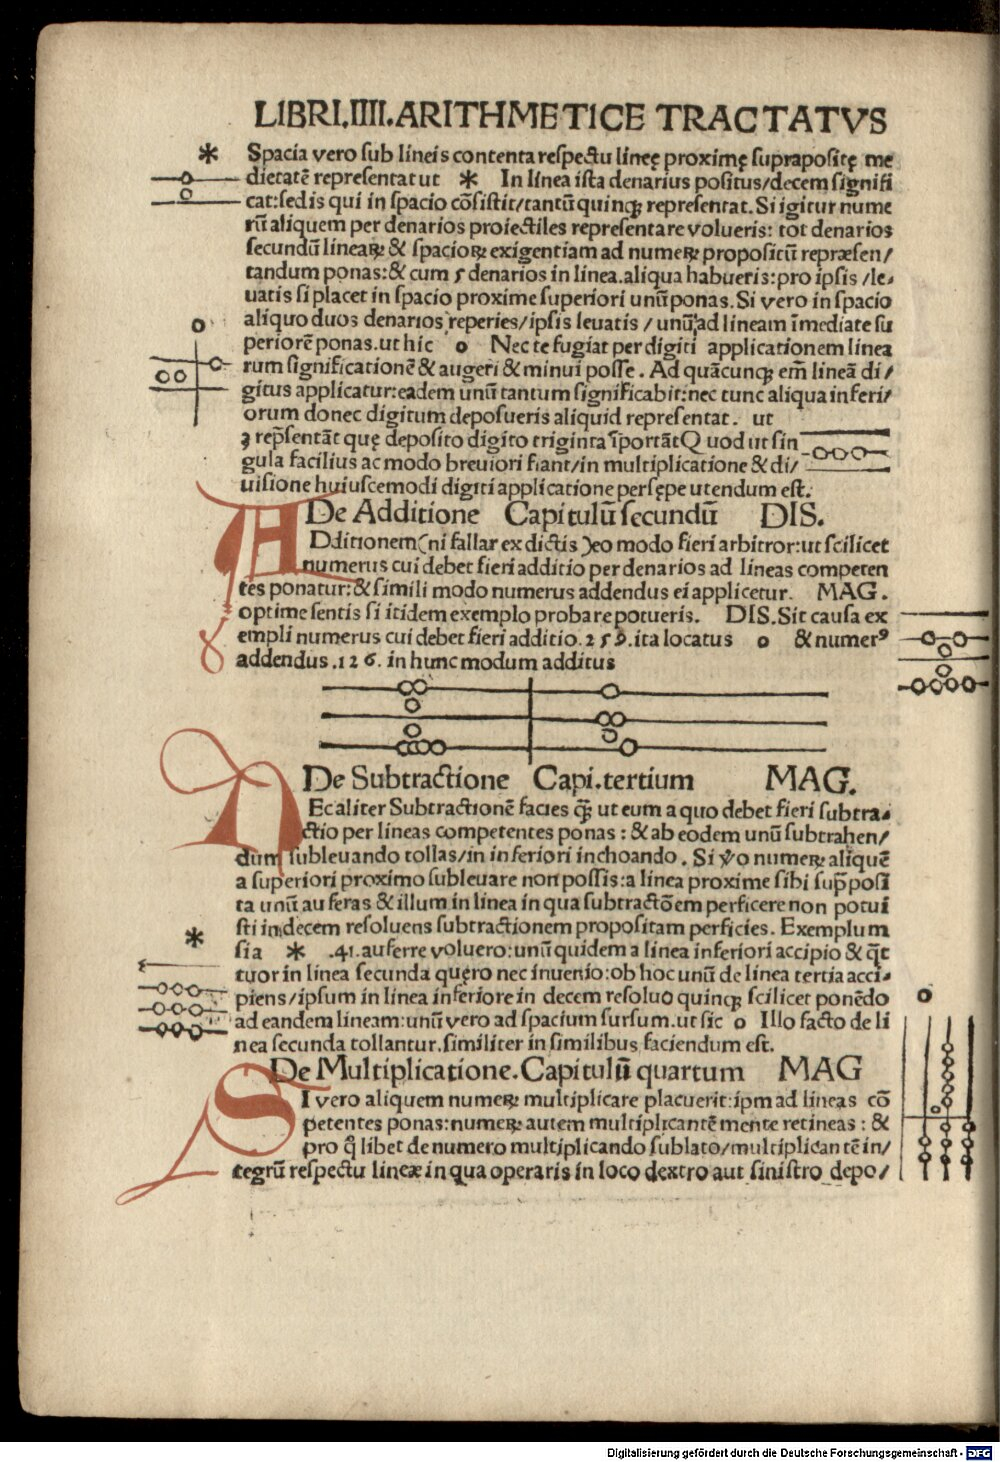 LIBRI.IIII.ARITHMETICE TRACTATVS
Spacia vero sub lineis contenta respectu lineę proximę supraposite me
dietatē representat ut * In linea ista denarius positus/decem signifi
cat:sedis qui in spacio cōsistit/tantū quinqꝫ representat. Si igitur nume
rū aliquem per denarios proiectiles representare volueris: tot denarios
secundū lineaꝝ & spacioꝝ exigentiam ad numeꝝ propositū repræsen/
tandum ponas:& cum 5 denarios in linea.aliqua habueris:pro ipsis /le/
uatis si placet in spacio proxime superiori unū ponas. Si vero in spacio
aliquo duos denarios reperies/ipsis leuatis / unū ad lineam īmediate su
periorē ponas.ut hic o Nec te fugiat per digiti applicationem linea
rum significationē & augeri & minui posse. Ad quācunqꝫ em̄ lineā di/
gitus applicatur:eadem unū tantum significabit:nec tunc aliqua inferi/
orum donec digitum deposueris aliquid representat. ut
ꝫ rep̄sentāt quę deposito digito triginta īportāt Quod ut sin
gula facilius ac modo breuiori fiant/in multiplicatione & di/
uisione huiuscemodi digiti applicatione persępe utendum est.
De Additione Capitulū secundū DIS.
ADditionem(ni fallar ex dictis )eo modo fieri arbitror:ut scilicet
numerus cui debet fieri additio per denarios ad lineas competen
tes ponatur:& simili modo numerus addendus ei applicetur. MAG.
optime sentis si itidem exemplo probare potueris. DIS. Sit causa ex
empli numerus cui debet fieri additio.259.ita locatus o & numerꝰ
addendus .126. in hunc modum additus
De Subtractione Capi.tertium MAG.
NEc aliter Subtractionē facies q̄ꝫ ut eum a quo debet fieri subtra/
ctio per lineas competentes ponas : & ab eodem unū subtrahen/
dum subleuando tollas/in inferiori inchoando. Si v̆o numeꝝ aliquē
a superiori proximo subleuare non possis:a linea proxime sibi sup̄posi
ta unū auferas & illum in linea in qua subtractōem perficere non potui
sti in decem resoluens subtractionem propositam perficies. Exemplum
sia * .41.auferre voluero:unū quidem a linea inferiori accipio & q̄t
tuor in linea secunda quęro nec inuenio:ob hoc unū de linea tertia acci/
piens/ipsum in linea inferiore in decem resoluo quinqꝫ scilicet ponēdo
ad eandem lineam:unū vero ad spacium sursum.ut sic o Illo facto de li
nea secunda tollantur.similiter in similibus faciendum est.
De Multiplicatione.Capitulū quartum MAG
SI vero aliquem numeꝝ multiplicare placuerit:ipm ad lineas cō
petentes ponas:numeꝝ autem multiplicantē mente retineas : &
pro q̄libet de numero multiplicando sublato/multiplicantē in/
tegrū respectu lineæ in qua operaris in loco dextro aut sinistro depo/
Digitalisierung gefördert durch die Deutsche Forschungsgemeinschaft - DFG